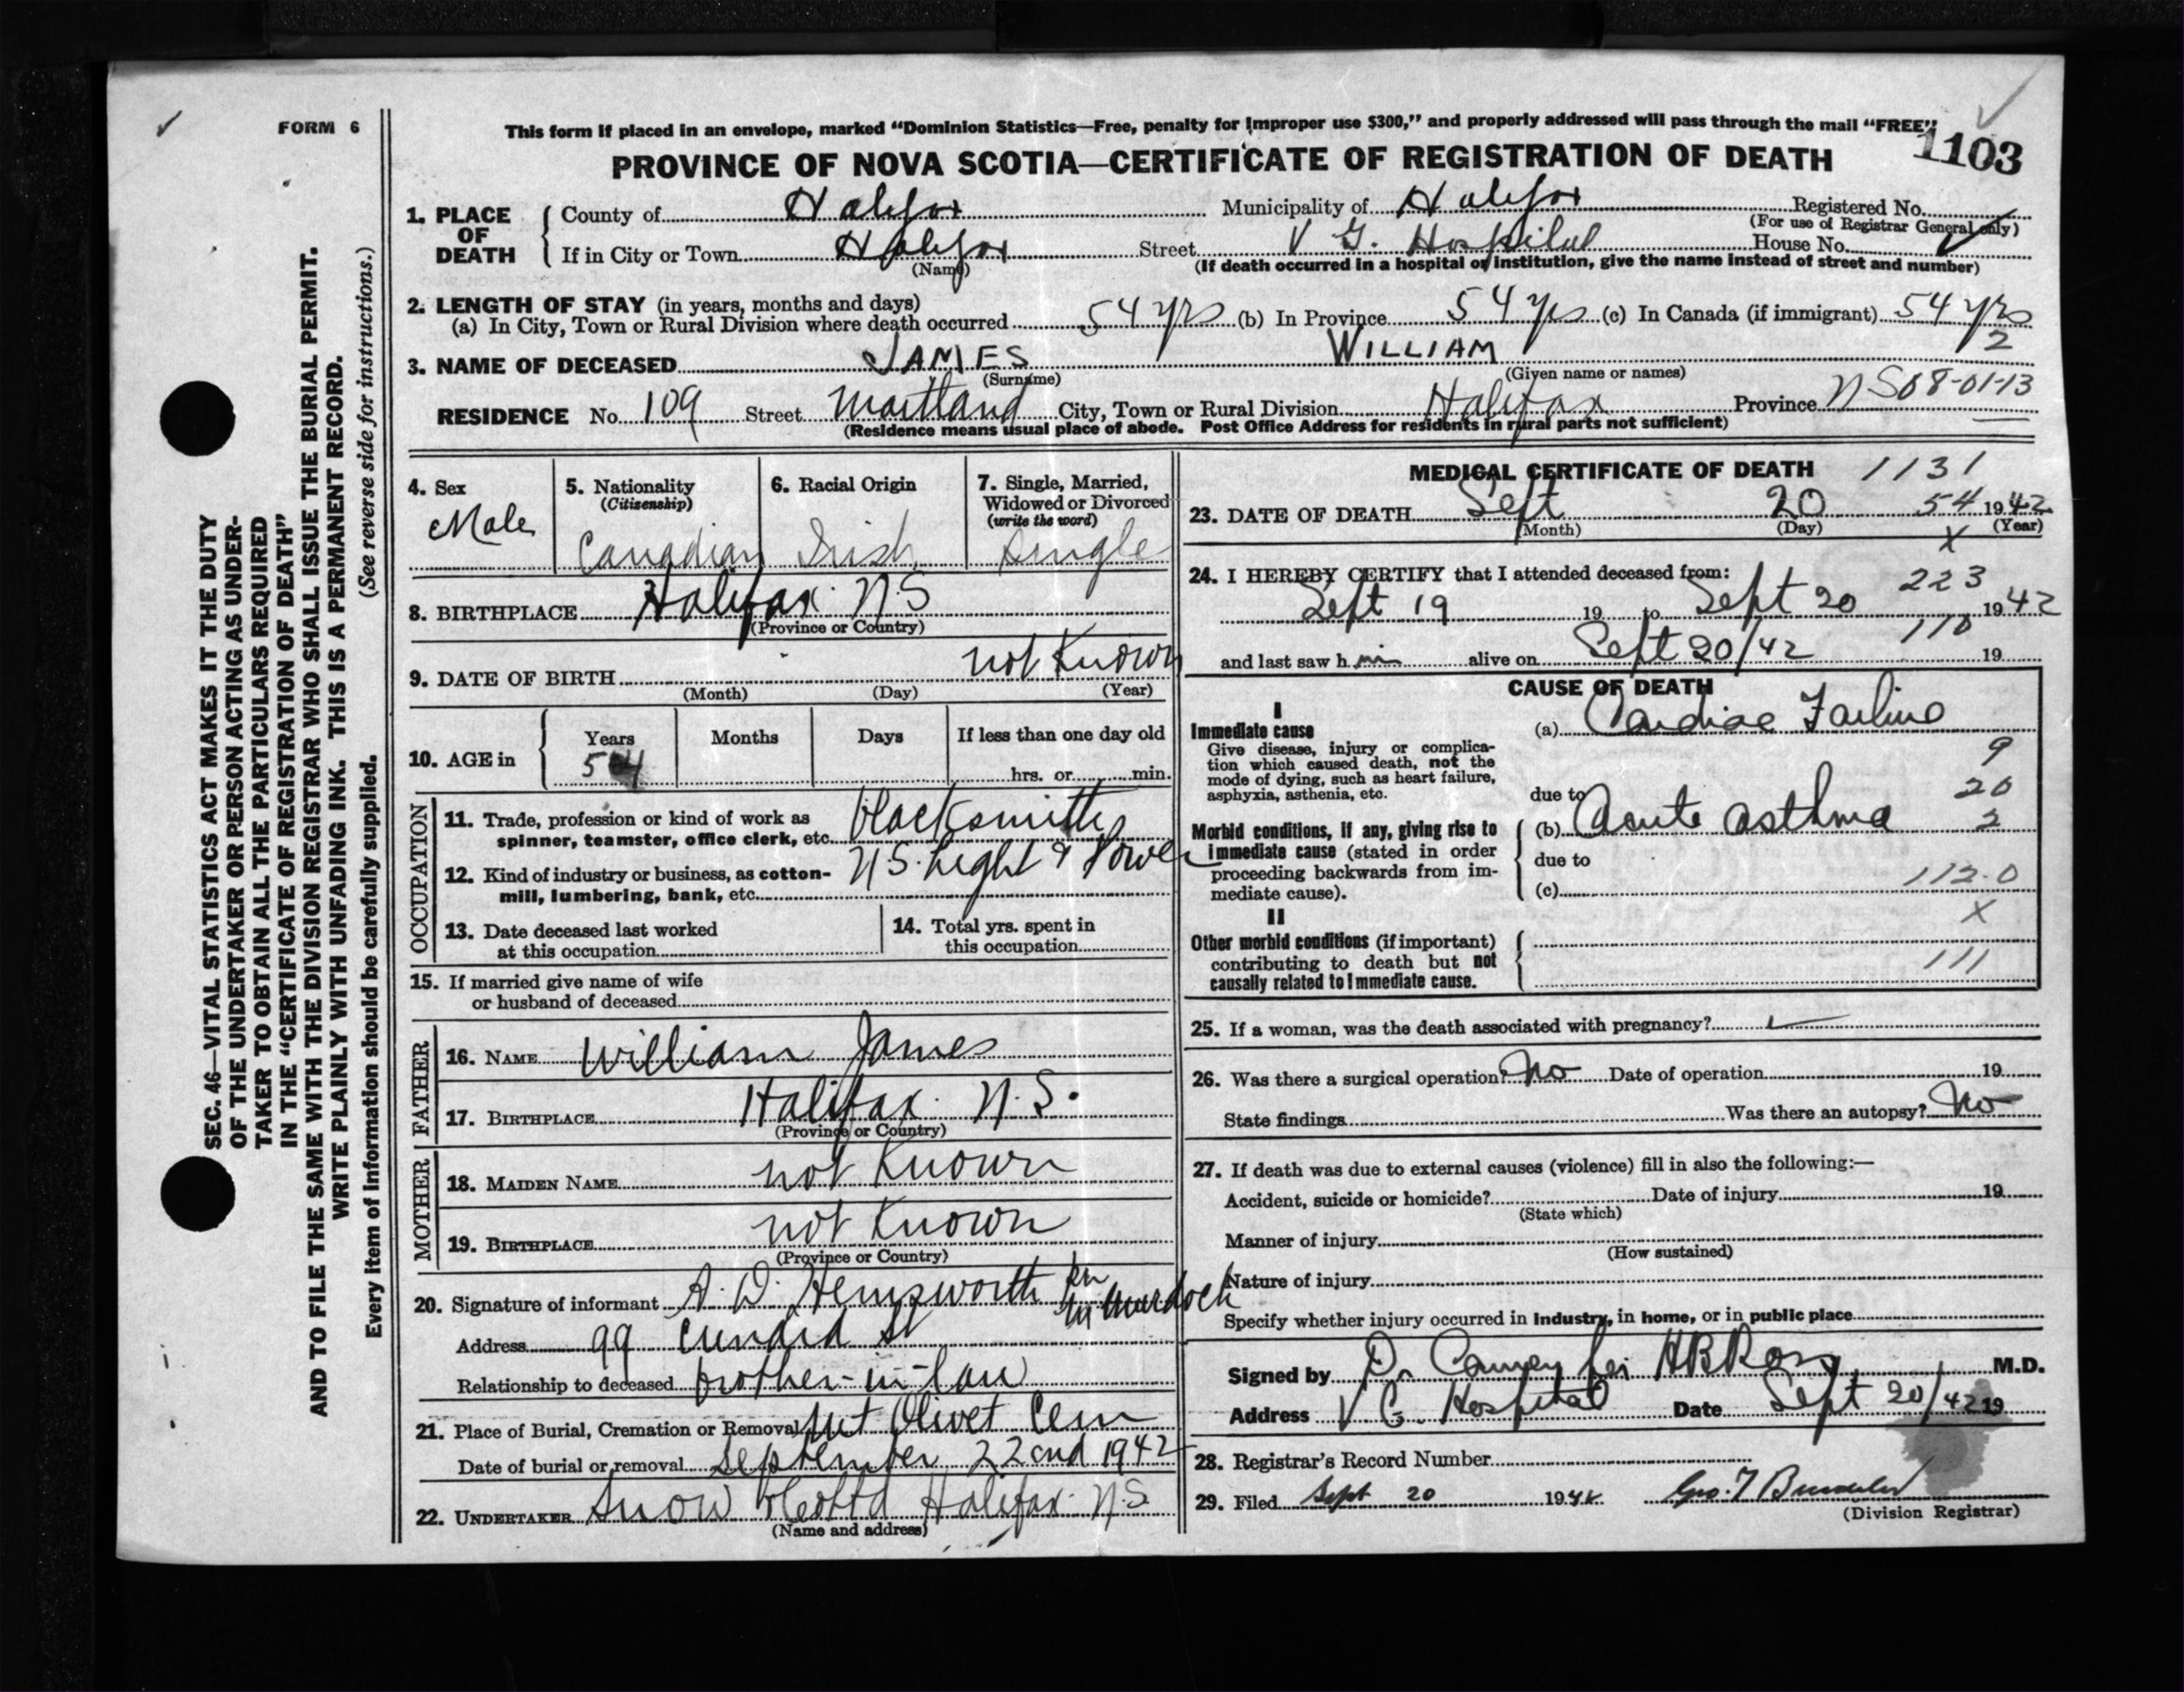 FORM 6
This form if placed in an envelope, marked “Dominion Statistics—Free, penalty for improper use $300,” and properly addressed will pass through the mail “FREE”
1103
PROVINCE OF NOVA SCOTIA—CERTIFICATE OF REGISTRATION OF DEATH
SEC. 46—VITAL STATISTICS ACT MAKES IT THE DUTY
OF THE UNDERTAKER OR PERSON ACTING AS UNDER-
TAKER TO OBTAIN ALL THE PARTICULARS REQUIRED
IN THE “CERTIFICATE OF REGISTRATION OF DEATH”
AND TO FILE THE SAME WITH THE DIVISION REGISTRAR WHO SHALL ISSUE THE BURIAL PERMIT.
WRITE PLAINLY WITH UNFADING INK. THIS IS A PERMANENT RECORD.
Every item of information should be carefully supplied. (See reverse side for instructions.)
1. PLACE OF DEATH
County of Halifax Municipality of Halifax Registered No.
(For use of Registrar General only)
If in City or Town Halifax Street V G. Hospital House No.
(Name) (If death occurred in a hospital or institution, give the name instead of street and number)
2. LENGTH OF STAY (in years, months and days)
(a) In City, Town or Rural Division where death occurred 54 yrs (b) In Province 54 yrs (c) In Canada (if immigrant) 54 yrs
2
3. NAME OF DECEASED JAMES WILLIAM
(Surname) (Given name or names)
RESIDENCE No. 109 Street Maitland City, Town or Rural Division Halifax Province NS 08-01-13
(Residence means usual place of abode. Post Office Address for residents in rural parts not sufficient)
4. Sex
Male
5. Nationality
(Citizenship)
Canadian
6. Racial Origin
Irish
7. Single, Married,
Widowed or Divorced
(write the word)
Single
8. BIRTHPLACE Halifax NS
(Province or Country)
9. DATE OF BIRTH not Known
(Month) (Day) (Year)
10. AGE in
Years Months Days If less than one day old
54 hrs. or min.
OCCUPATION
11. Trade, profession or kind of work as
spinner, teamster, office clerk, etc. blacksmith
12. Kind of industry or business, as cotton-
mill, lumbering, bank, etc. NS. Light & Power
13. Date deceased last worked
at this occupation
14. Total yrs. spent in
this occupation
15. If married give name of wife
or husband of deceased
FATHER
16. NAME William James
17. BIRTHPLACE Halifax. N.S.
(Province or Country)
MOTHER
18. MAIDEN NAME not Known
19. BIRTHPLACE not Known
(Province or Country)
20. Signature of informant A. D. Hemsworth Per
M Murdoch
Address 99 Cunard St
Relationship to deceased brother-in-law
21. Place of Burial, Cremation or Removal Mt Olivet Cem
Date of burial or removal September 22cnd 1942
22. UNDERTAKER Snow & Co Ltd Halifax N.S
(Name and address)
MEDICAL CERTIFICATE OF DEATH 1131
23. DATE OF DEATH Sept 20 54 1942
(Month) (Day) (Year)
X
24. I HEREBY CERTIFY that I attended deceased from: 223
Sept 19 19 to Sept 20 1942
110
and last saw h im alive on Sept 20/42 19
CAUSE OF DEATH
I
Immediate cause
Give disease, injury or complica-
tion which caused death, not the
mode of dying, such as heart failure,
asphyxia, asthenia, etc.
(a) Cardiac Failure
9
due to 20
Morbid conditions, if any, giving rise to
immediate cause (stated in order
proceeding backwards from im-
mediate cause).
(b) Acute asthma 2
due to
(c) 112.0
X
II
Other morbid conditions (if important)
contributing to death but not
causally related to immediate cause.
111
25. If a woman, was the death associated with pregnancy?
26. Was there a surgical operation? No Date of operation 19
State findings Was there an autopsy? No
27. If death was due to external causes (violence) fill in also the following:—
Accident, suicide or homicide? Date of injury 19
(State which)
Manner of injury
(How sustained)
Nature of injury
Specify whether injury occurred in industry, in home, or in public place
Signed by Dr for HB Ross M.D.
Address V G. Hospital Date Sept 20/42 19
28. Registrar's Record Number
29. Filed Sept 20 1942 Geo. T
(Division Registrar)